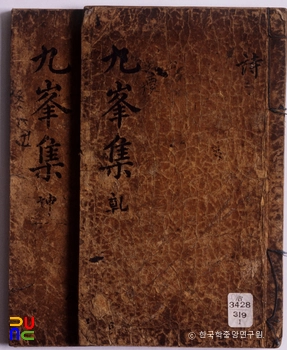 九峯集 乾
詩
九峯集 坤
3428
319
1
© 한국학중앙연구원